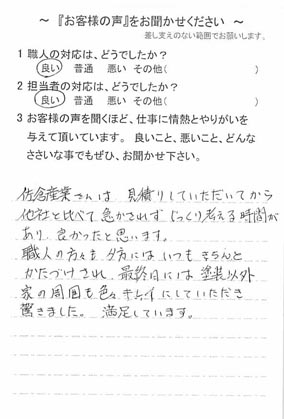 ～『お客様の声』をお聞かせください～
差し支えのない範囲でお願いします。
1 職人の対応は、どうでしたか?
良い 普通 悪い その他( )
2 担当者の対応は、どうでしたか?
良い 普通 悪い その他( )
3 お客様の声を聞くほど、仕事に情熱とやりがいを
与えて頂いています。良いこと、悪いこと、どんな
ささいな事でもぜひ、お聞かせ下さい。
佐倉産業さんは 見積りしていただいてから
他社と比べて 急かされず じっくり考える時間が
あり、良かったと思います。
職人の方も 夕方には いつも きちんと
かたづけされ、最終日には 塗装以外
家の周囲も色々キレイにしていただき
驚きました。 満足しています。